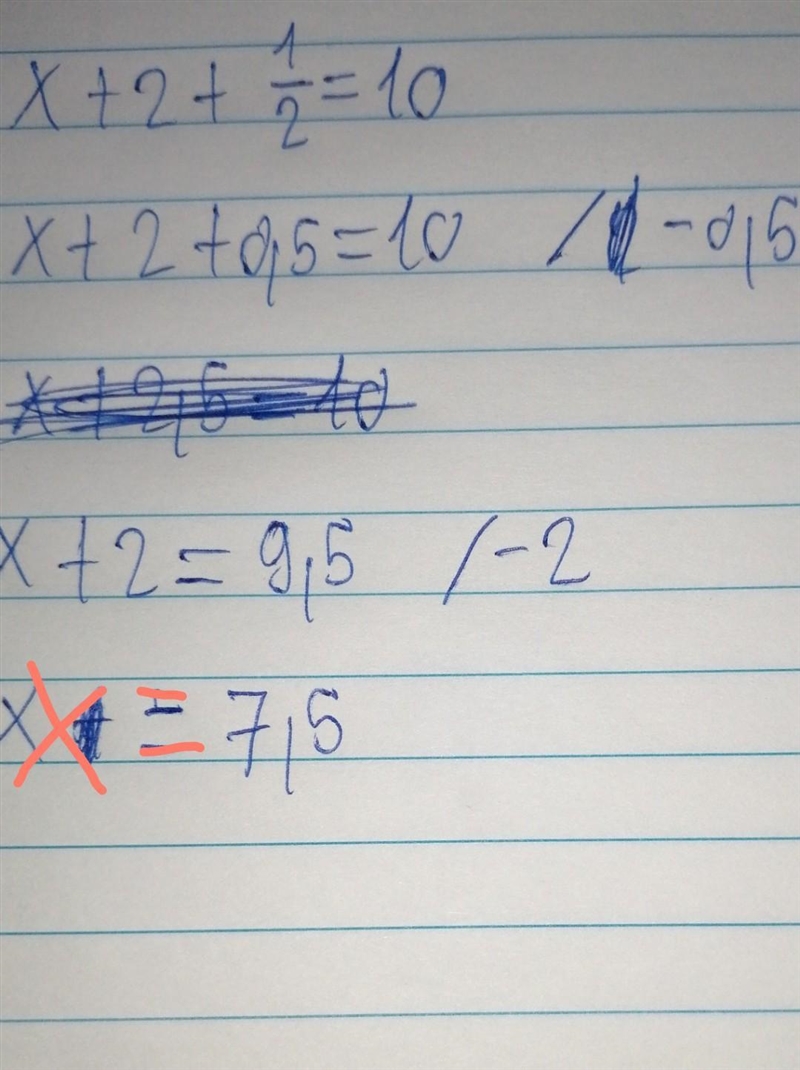 x + 2 + 1/2 = 10
x + 2 + 0,5 = 10 / - 0,5
x + 2,5 = 10
x + 2 = 9,5 / - 2
x = 7,5